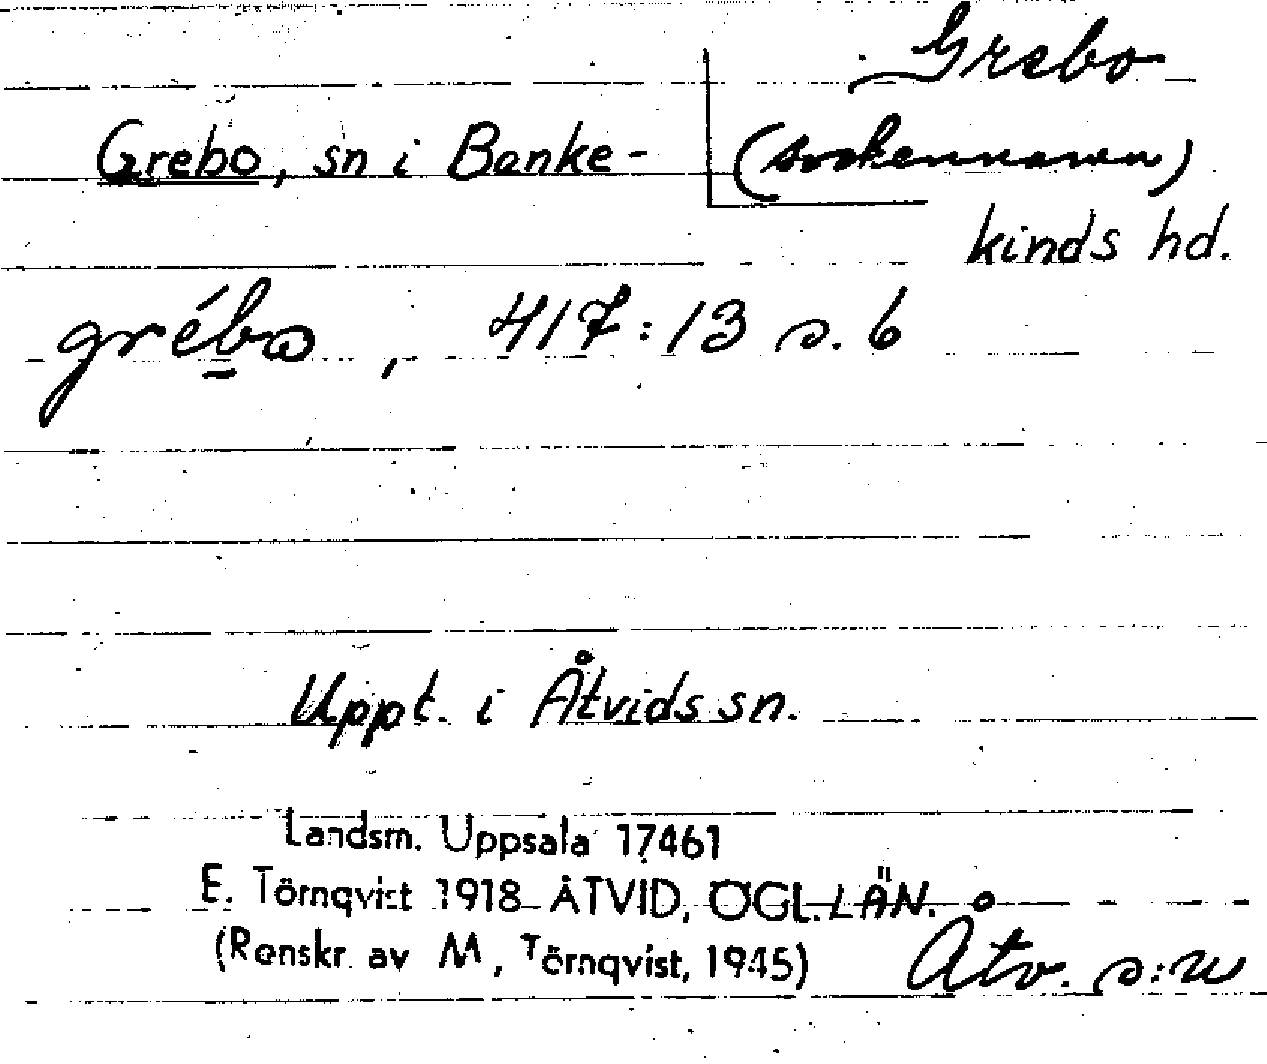 Grebo
Grebo, sn i Banke-
(sockennamn)
kinds hd.
grébo, 417:13 s. 6
Uppt. i Åtvids sn.
Landsm. Uppsala 17461
E. Törnqvist 1918 ÅTVID, ÖGL. LÄN.
(Renskr. av M, Törnqvist, 1945)
Åtv. s:n